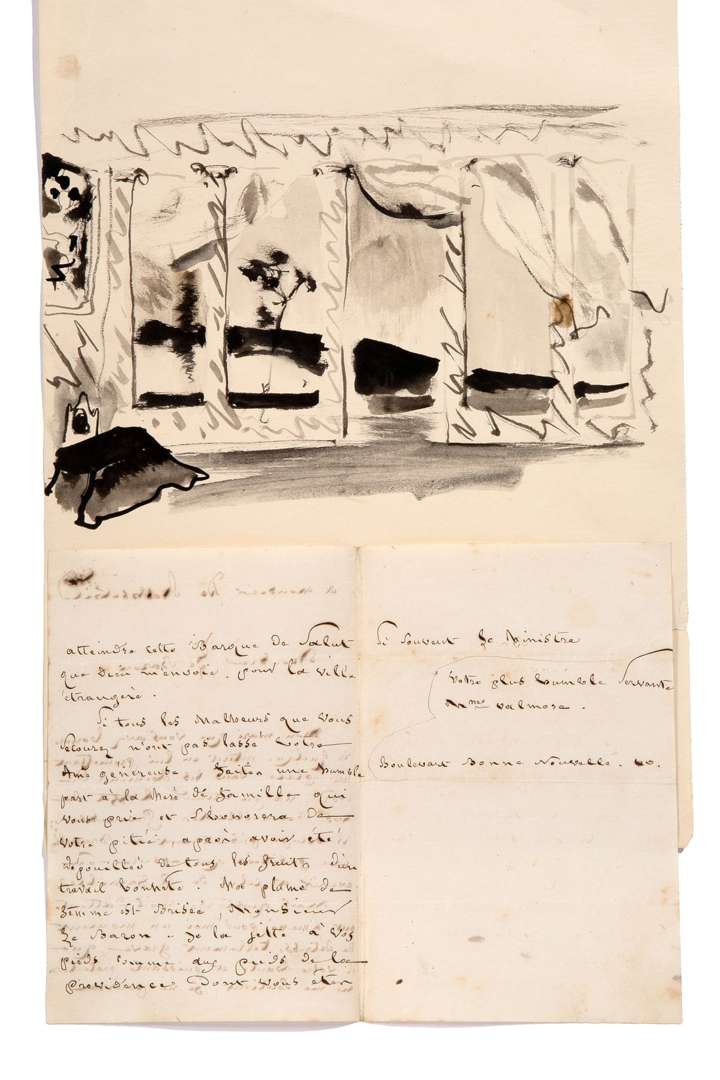 atteindre cette Barque de Salut
que dieu m'envoie. pour la ville
étrangère.
Si tous les Malheurs que vous
secourez n'ont pas lassé votre
Ame généreuse faites une humble
part à la Mère de famille qui
vous prie et s'honorera de
votre pitié, après avoir été
dépouillée de tous les fruits d'un
travail honnête. Ma plume de
femme est Brisée, Monsieur
Le Baron. Je la jette à vos
pieds comme aux pieds de la
providence, Dont vous êtes
Si souvent Le Ministre
Votre plus humble Servante
Mme valmore.
Boulevart Bonne Nouvelle.